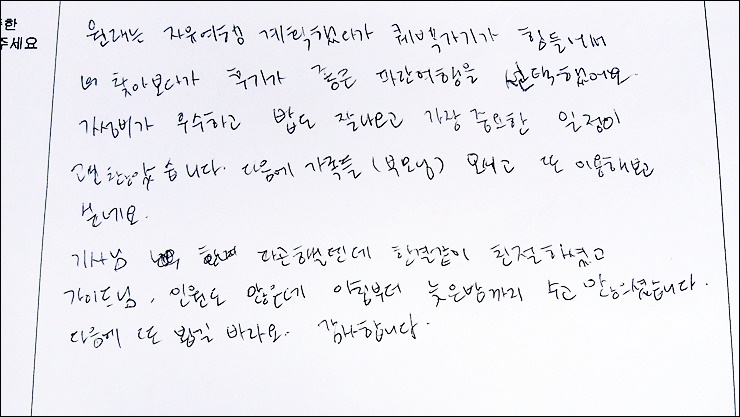 한
주세요
원래는 자유여행 계획했다가 퀘벡가기가 힘들어서
더 찾아보다가 후기가 좋은 파란여행을 선택했어요.
가성비가 우수하고 밥도 잘나오고 가장 중요한 일정이
괜찮았습니다. 다음에 가족들 (부모님) 모시고 또 이용해보고
싶네요.
기사님 피곤했을텐데 한결같이 친절하셨고
가이드님, 인원도 많은데 아침부터 늦은밤까지 수고 많으셨습니다.
다음에 또 뵙길 바라요. 감사합니다.